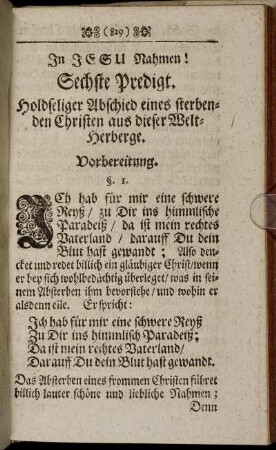 (819)
In JESU Nahmen!
Sechste Predigt.
Holdseliger Abschied eines sterben-
den Christen aus dieser Welt-
Herberge.
Vorbereitung.
§. 1.
ICh hab für mir eine schwere
Reyß/ zu Dir ins himmlische
Paradeiß/ da ist mein rechtes
Vaterland/ darauff Du dein
Blut hast gewandt; Also den-
cket und redet billich ein gläubiger Christ/wenn
er bey sich wohlbedächtig überleget/ was in sei-
nem Absterben ihm bevorstehe/ und wohin er
alsdenn eile. Er spricht:
Ich hab für mir eine schwere Reyß
Zu Dir ins himmlisch Paradeiß;
Da ist mein rechtes Vaterland/
Darauff Du dein Blut hast gewandt.
Das Absterben eines frommen Christen führet
billich lauter schöne und liebliche Nahmen;
Denn